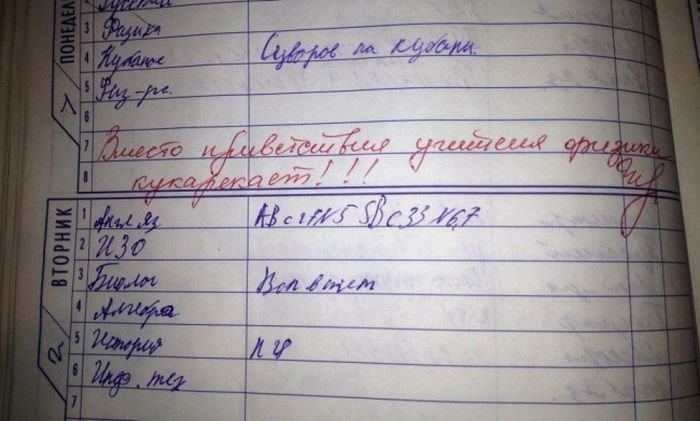 ПОНЕДЕЛ
Русский
3 Физика
4 Кубанов Суворов на кубани.
5 Физ-ра.
6
7 Вместо приветствия учителя физики
8 кукарекает!!!
7
ВТОРНИК
1 Англ яз АВ с 27 N5 SB с 33 N6,7
2 ИЗО
3 Биолог Воп в тет
4 Алгебра
5 История П 9
6 Инф. тех
7
2